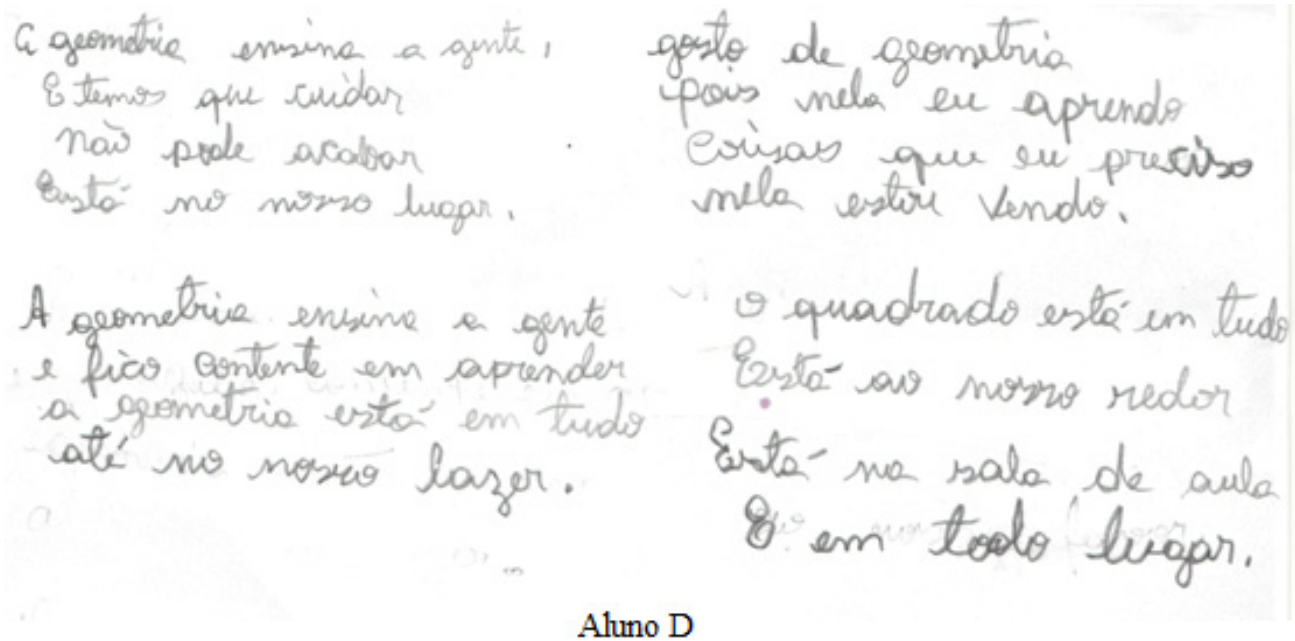 A geometria ensina a gente,
E temos que cuidar
não pode acabar
Está no nosso lugar.
A geometria ensina a gente
e fico contente em aprender
a geometria está em tudo
até no nosso lazer.
gosto de geometria
pois nela eu aprendo
Coisas que eu preciso
nela estive vendo.
o quadrado está em tudo
Está ao nosso redor
Está na sala de aula
E em todo lugar.
Aluno D